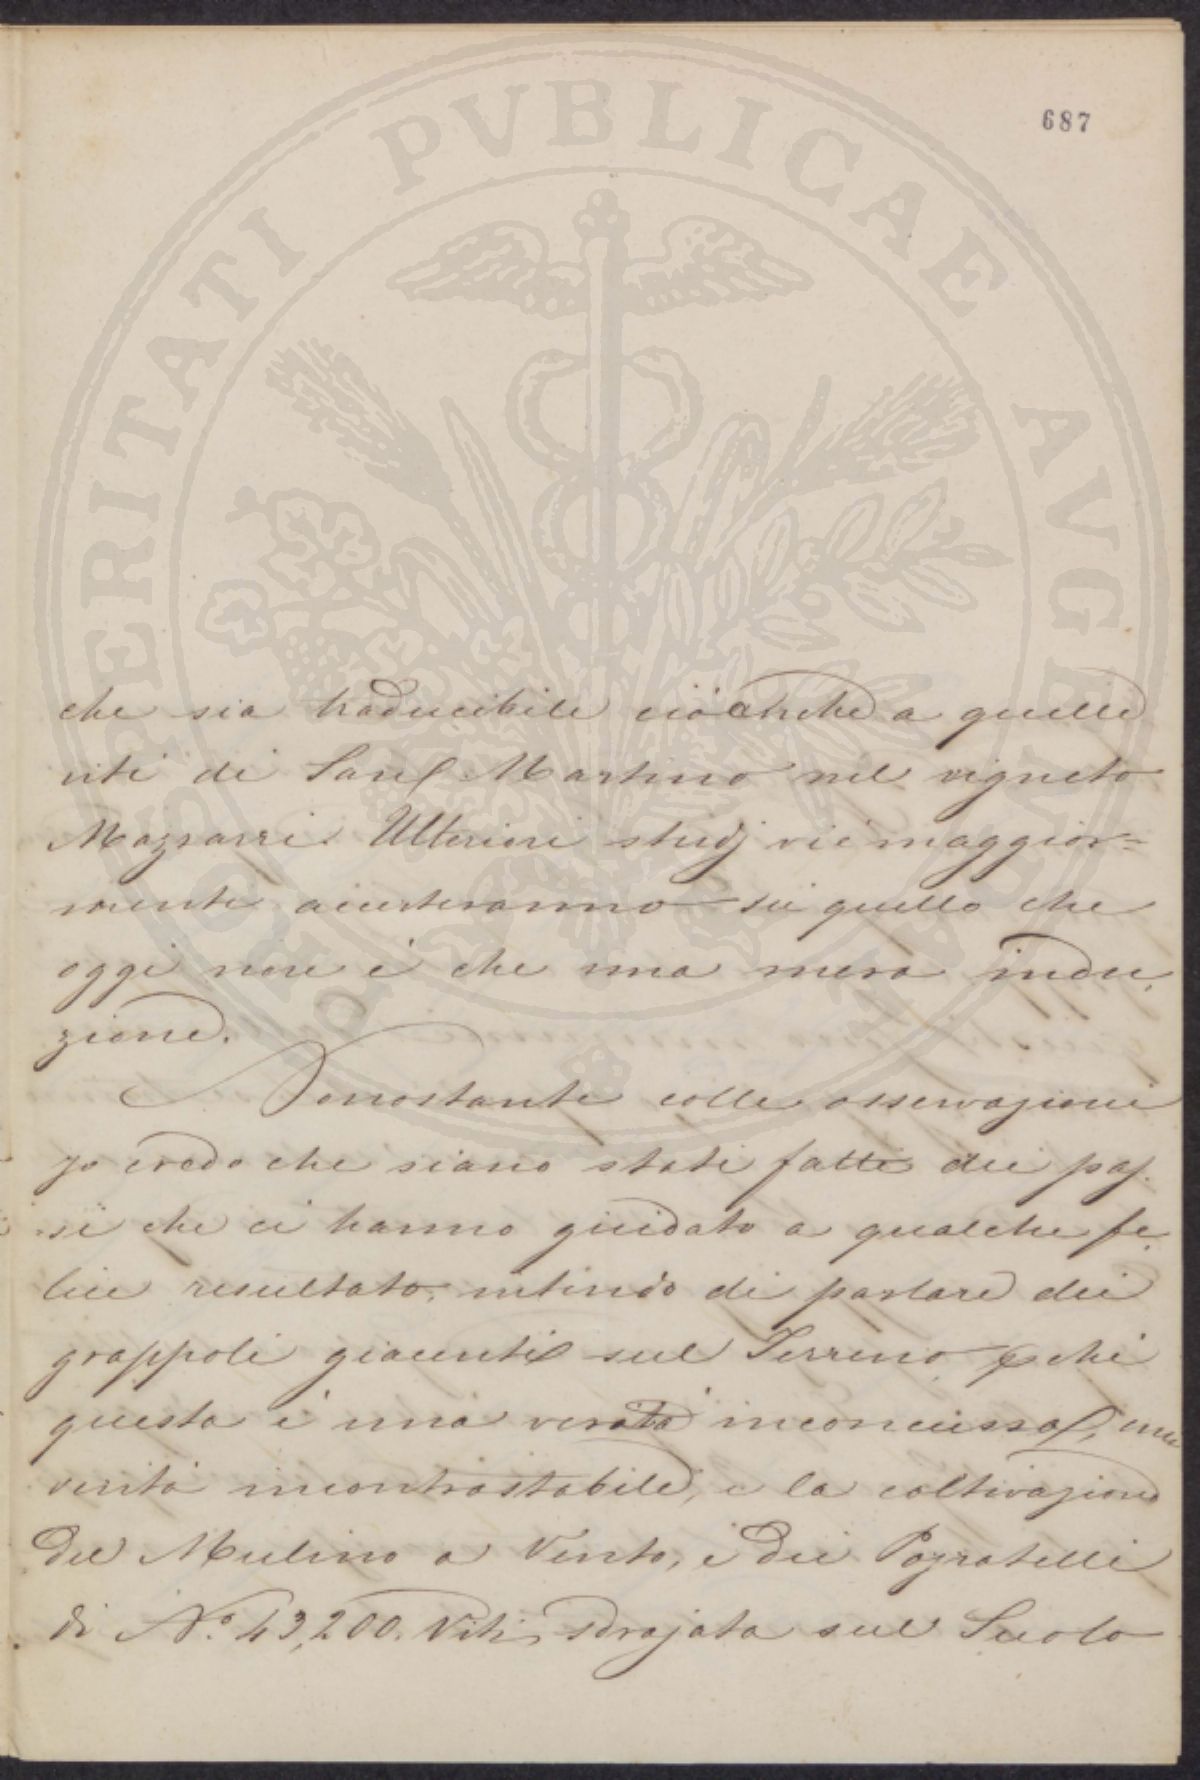 687
che sia traducibile ciò anche a quelle
viti di San Martino nel vigneto
Mazzarri. Ulteriori studj vie maggior=
mente accerteranno su quello che
oggi non è che una mera indu,
zione.
Nonostante colle osservazioni
io credo che siano stati fatti dei pas.
si che ci hanno guidato a qualche fe,
lice resultato, intendo di parlare dei
grappoli giacenti sul Terreno chè
questa è una verità inconcussa, una
verità incontrastabile, e la coltivazione
del Mulino a Vento, e dei Pozzatelli
di N.º 43,200. Viti, sdrajata sul Suolo
PROSPERITATI PVBLICAE AVGENDAE